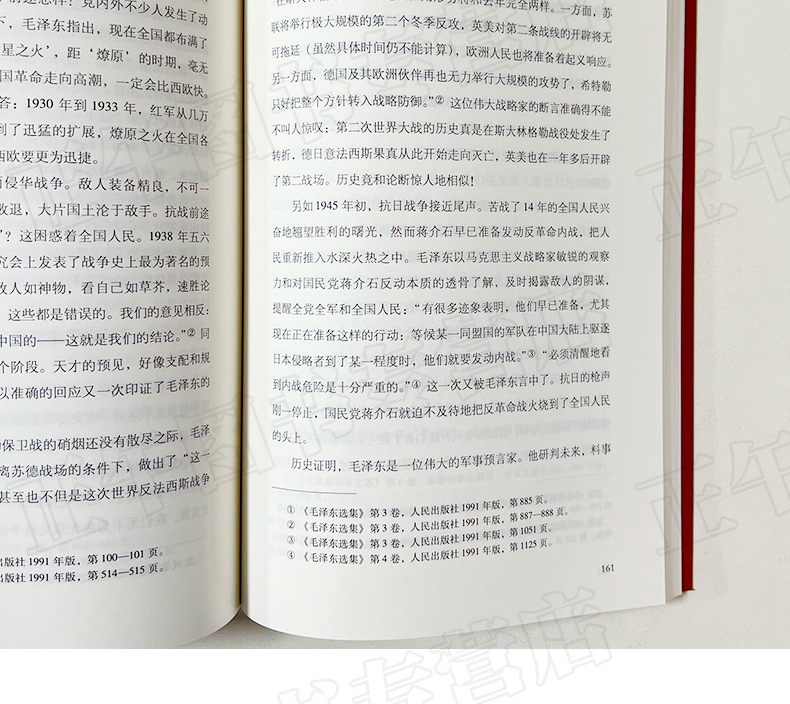 前途怎样？党内外不少人发生了动
下，毛泽东指出，现在全国都布满了
星之火’，距‘燎原’的时期，毫无
国革命走向高潮，一定会比西欧快。
答：1930 年到 1933 年，红军从几万
到了迅猛的扩展，燎原之火在全国各
西欧要更为迅捷。
侵华战争。敌人装备精良，不可一
败退，大片国土沦于敌手。抗战前途
’？这困惑着全国人民。1938 年五六
究会上发表了战争史上最为著名的预
敌人如神物，看自己如草芥，速胜论
这些都是错误的。我们的意见相反：
中国的——这就是我们的结论。”② 同
个阶段。天才的预见，好像支配和规
以准确的回应又一次印证了毛泽东的
保卫战的硝烟还没有散尽之际，毛泽
离苏德战场的条件下，做出了“这一
甚至也不但是这次世界反法西斯战争
出版社 1991 年版，第 100—101 页。
出版社 1991 年版，第 514—515 页。
和去年完全两样。一方面，苏
联将举行极大规模的第二个冬季反攻，英美对第二条战线的开辟将无
可拖延（虽然具体时间仍不能计算），欧洲人民也将准备着起义响应。
另一方面，德国及其欧洲伙伴再也无力举行大规模的攻势了，希特勒
只好把整个方针转入战略防御。”② 这位伟大战略家的断言准确得不能
不叫人惊叹：第二次世界大战的历史真是在斯大林格勒战役处发生了
转折，德日意法西斯果真从此开始走向灭亡，英美也在一年多后开辟
了第二战场。历史竟和论断惊人地相似！
另如 1945 年初，抗日战争接近尾声。苦战了 14 年的全国人民兴
奋地翘望胜利的曙光，然而蒋介石早已准备发动反革命内战，把人
民重新推入水深火热之中。毛泽东以马克思主义战略家敏锐的观察
力和对国民党蒋介石反动本质的透骨了解，及时揭露敌人的阴谋，
提醒全党全军和全国人民：“有很多迹象表明，他们早已准备，尤其
现在正在准备这样的行动：等候某一同盟国的军队在中国大陆上驱逐
日本侵略者到了某一程度时，他们就要发动内战。”③ “必须清醒地看
到内战危险是十分严重的。”④ 这一次又被毛泽东言中了。抗日的枪声
刚一停止，国民党蒋介石就迫不及待地把反革命战火烧到了全国人民
的头上。
历史证明，毛泽东是一位伟大的军事预言家。他研判未来，料事
① 《毛泽东选集》第 3 卷，人民出版社 1991 年版，第 885 页。
② 《毛泽东选集》第 3 卷，人民出版社 1991 年版，第 887—888 页。
③ 《毛泽东选集》第 3 卷，人民出版社 1991 年版，第 1051 页。
④ 《毛泽东选集》第 4 卷，人民出版社 1991 年版，第 1125 页。
161